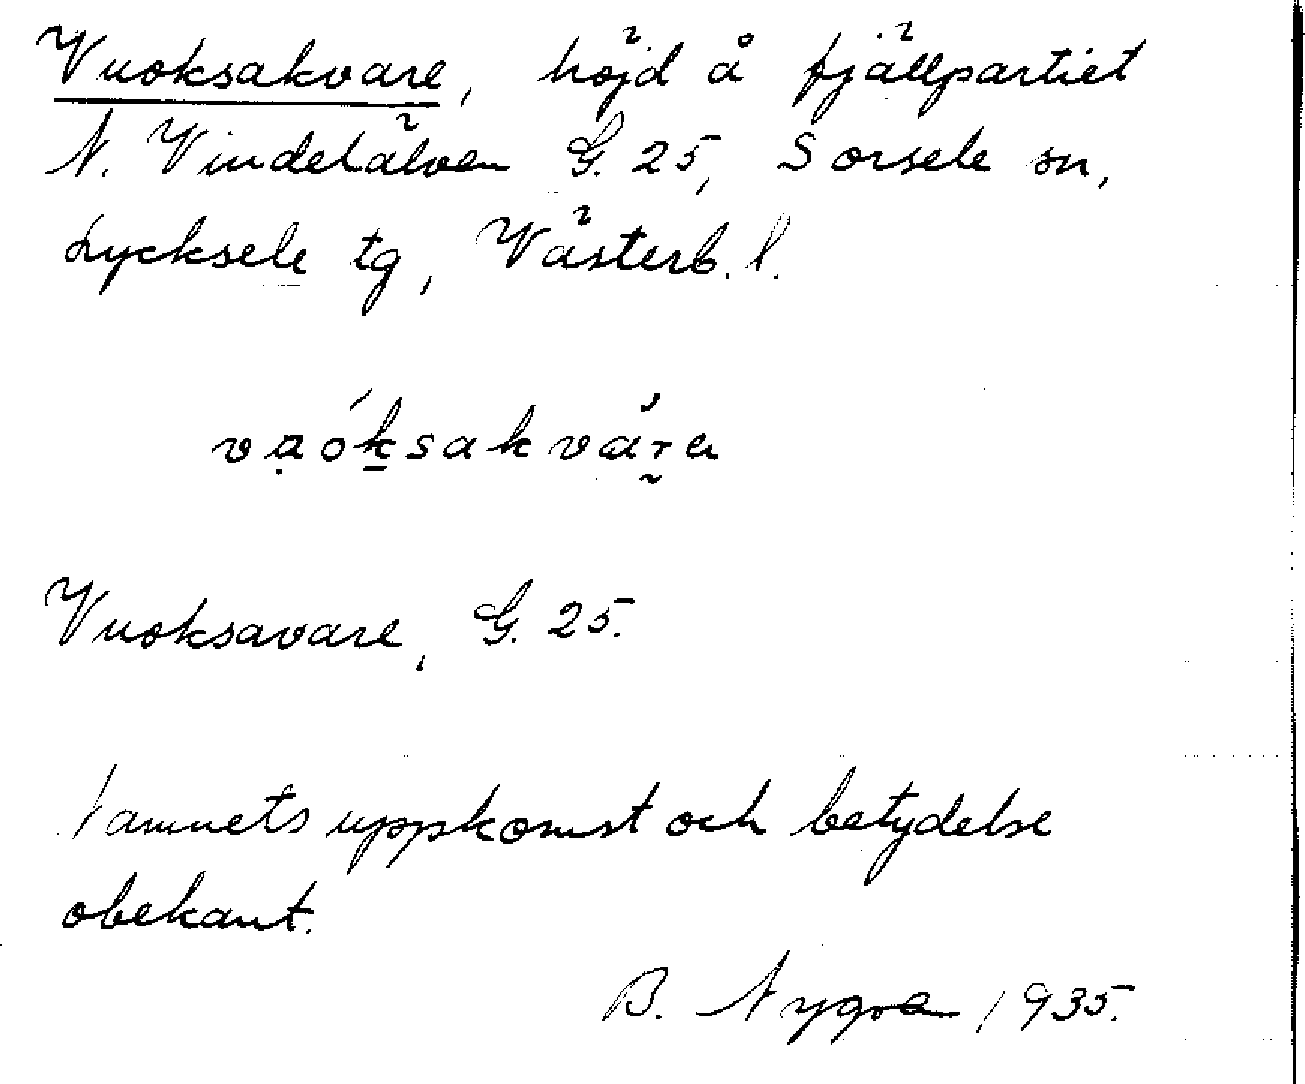 Vuoksakvare, höjd å fjällpartiet
N. Vindelälven G. 25, Sorsele sn,
Lycksele tg, Västerb. l.
Vuoksavare, G. 25.
Namnets uppkomst och betydelse
obekant.
B. Nygren 1935.